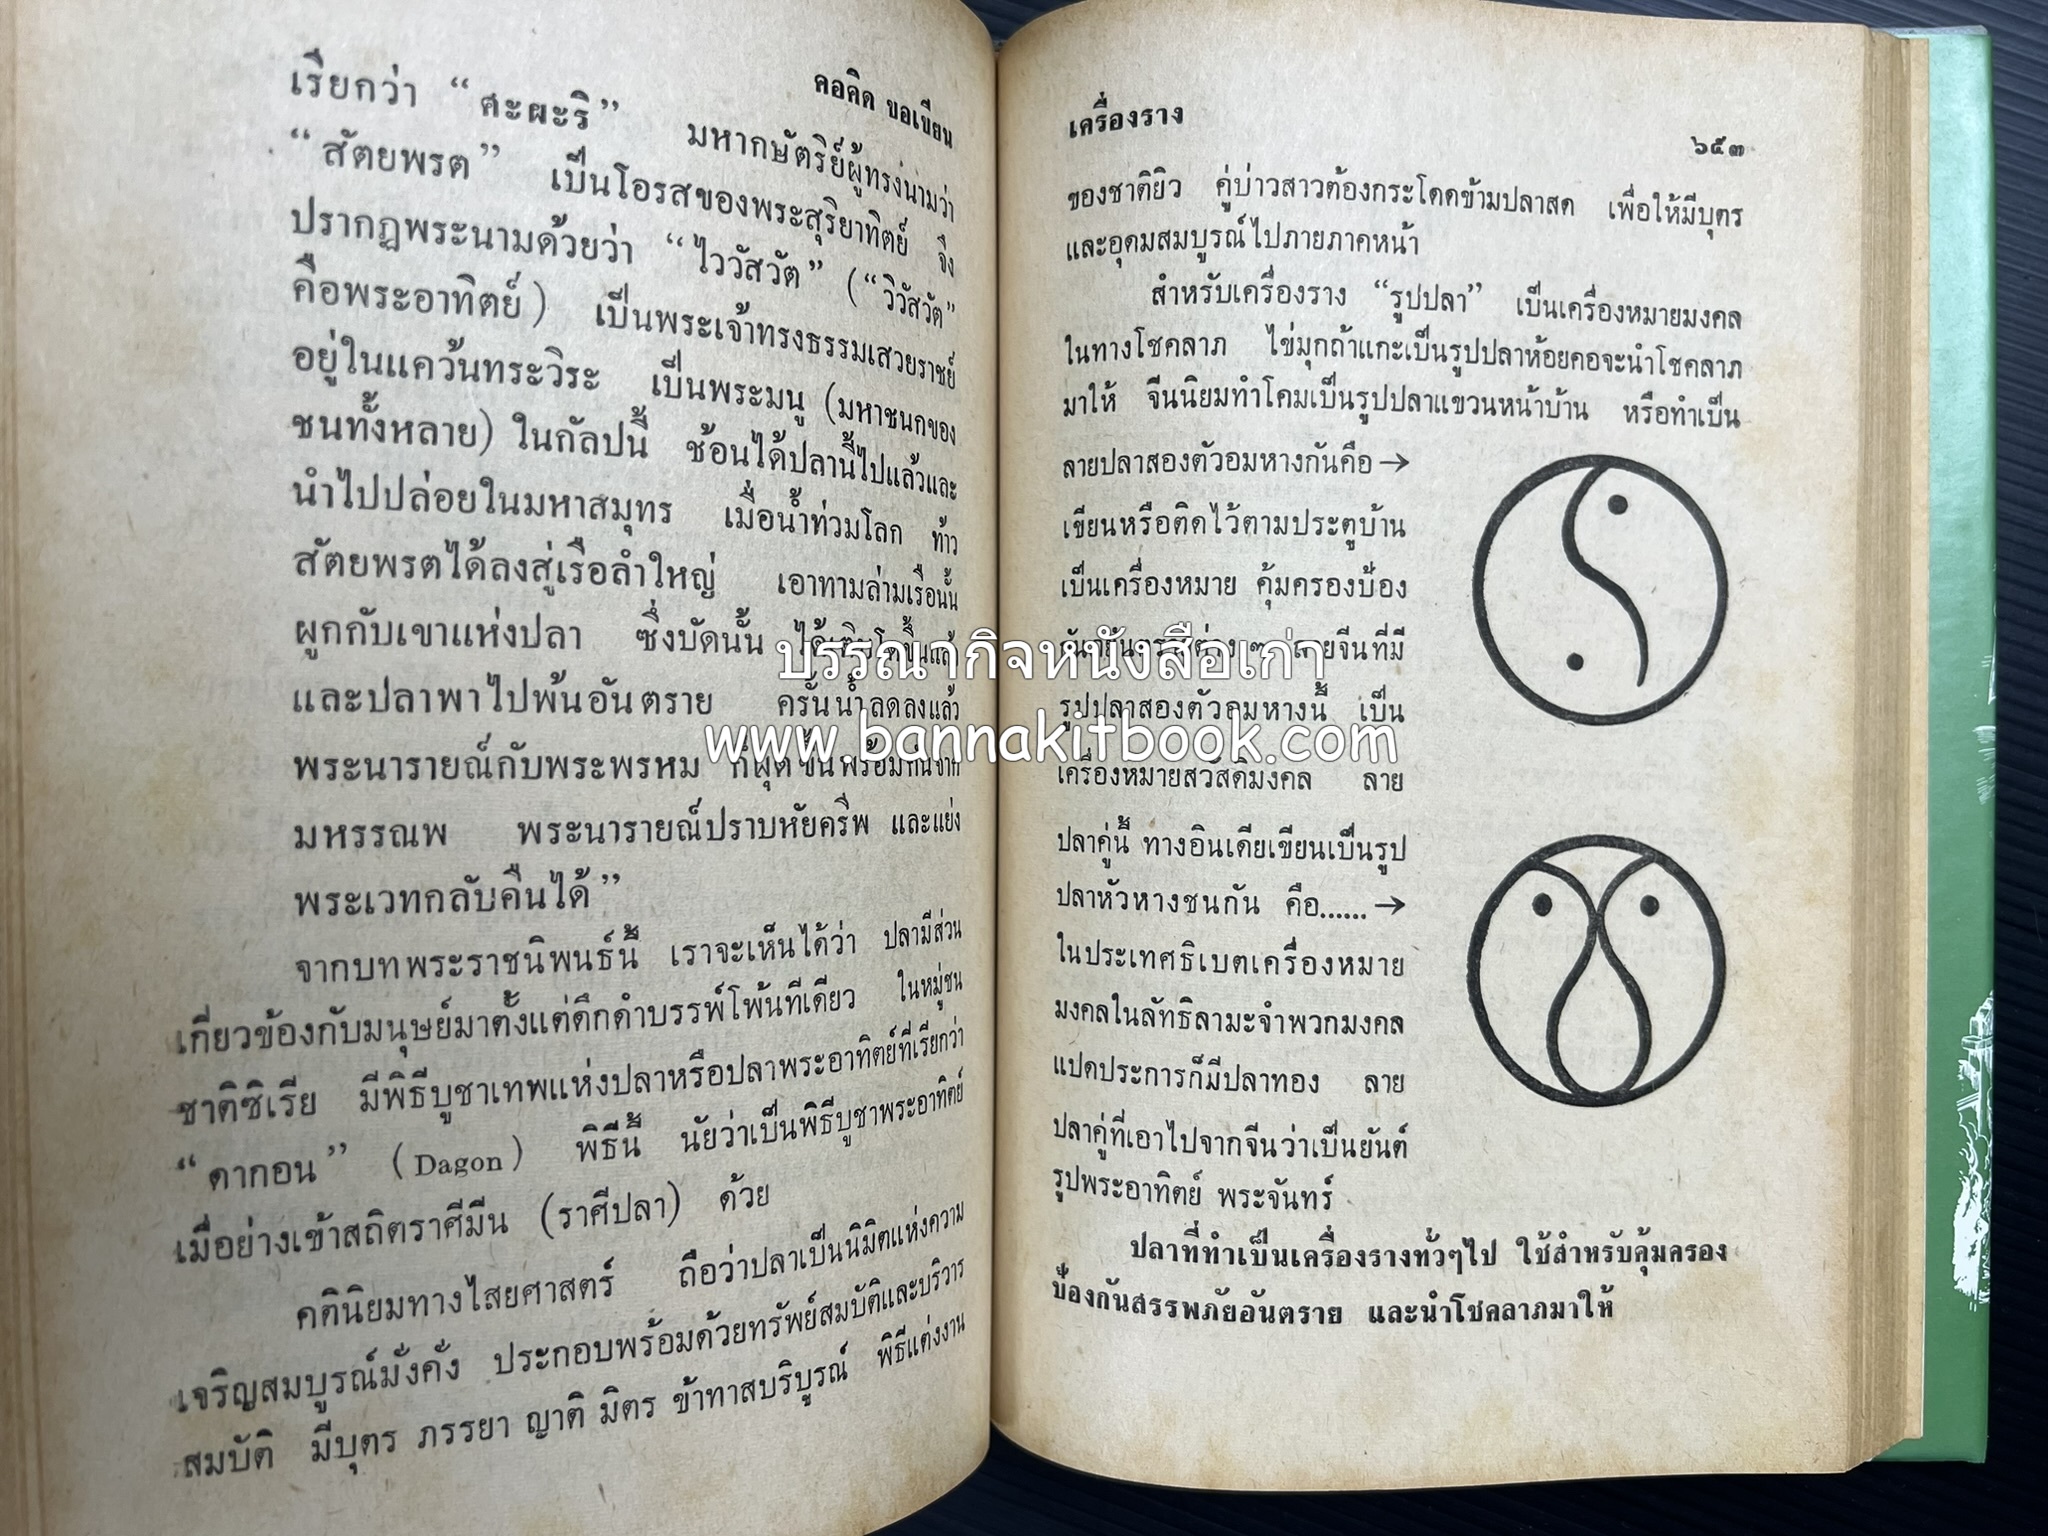 คอคิด ขอเขียน
เรียกว่า “ศะผะริ” มหากษัตริย์ผู้ทรงนามว่า
“สัตยพรต” เป็นโอรสของพระสุริยาทิตย์ จึง
ปรากฏพระนามด้วยว่า “ไววัสวัต” (“วิวัสวัต”
คือพระอาทิตย์) เป็นพระเจ้าทรงธรรมเสวยราชย์
อยู่ในแคว้นทระวิระ เป็นพระมนู (มหาชนกของ
ชนทั้งหลาย) ในกัลปนี้ ช้อนได้ปลานี้ไปแล้วและ
นำไปปล่อยในมหาสมุทร เมื่อน้ำท่วมโลก ท้าว
สัตยพรตได้ลงสู่เรือลำใหญ่ เอาทามล่ามเรือนั้น
ผูกกับเขาแห่งปลา ซึ่งบัดนั้น
และปลาพาไปพ้นอันตราย ครั้นน้ำลดลงแล้ว
พระนารายณ์กับพระพรหม ก็ผุดขึ้นพร้อมกันจาก
มหรรณพ พระนารายณ์ปราบหัยครีพ และแย่ง
พระเวทกลับคืนได้”
จากบทพระราชนิพนธ์นี้ เราจะเห็นได้ว่า ปลามีส่วน
เกี่ยวข้องกับมนุษย์มาตั้งแต่ดึกดำบรรพ์โพ้นทีเดียว ในหมู่ชน
ชาติซิเรีย มีพิธีบูชาเทพแห่งปลาหรือปลาพระอาทิตย์ที่เรียกว่า
“ดากอน” (Dagon) พิธีนี้ นัยว่าเป็นพิธีบูชาพระอาทิตย์
เมื่อย่างเข้าสถิตราศีมีน (ราศีปลา) ด้วย
คตินิยมทางไสยศาสตร์ ถือว่าปลาเป็นนิมิตแห่งความ
เจริญสมบูรณ์มั่งคั่ง ประกอบพร้อมด้วยทรัพย์สมบัติและบริวาร
สมบัติ มีบุตร ภรรยา ญาติ มิตร ข้าทาสบริบูรณ์ พิธีแต่งงาน
เครื่องราง
๖๕๓
ของชาติยิว คู่บ่าวสาวต้องกระโดดข้ามปลาสด เพื่อให้มีบุตร
และอุดมสมบูรณ์ไปภายภาคหน้า
สำหรับเครื่องราง “รูปปลา” เป็นเครื่องหมายมงคล
ในทางโชคลาภ ไข่มุกถ้าแกะเป็นรูปปลาห้อยคอจะนำโชคลาภ
มาให้ จีนนิยมทำโคมเป็นรูปปลาแขวนหน้าบ้าน หรือทำเป็น
ลายปลาสองตัวอมหางกันคือ →
เขียนหรือติดไว้ตามประตูบ้าน
เป็นเครื่องหมาย คุ้มครองป้อง
กันภยันตรายต่าง ๆ ลายจีนที่มี
รูปปลาสองตัวอมหางนี้ เป็น
เครื่องหมายสวัสดิมงคล ลาย
ปลาคู่นี้ ทางอินเดียเขียนเป็นรูป
ปลาหัวหางชนกัน คือ...... →
ในประเทศธิเบตเครื่องหมาย
มงคลในลัทธิลามะจำพวกมงคล
แปดประการก็มีปลาทอง ลาย
ปลาคู่ที่เอาไปจากจีนว่าเป็นยันต์
รูปพระอาทิตย์ พระจันทร์
ปลาที่ทำเป็นเครื่องรางทั่วๆไป ใช้สำหรับคุ้มครอง
ป้องกันสรรพภัยอันตราย และนำโชคลาภมาให้
บรรณากิจหนังสือเก่า
www.bannakitbook.com